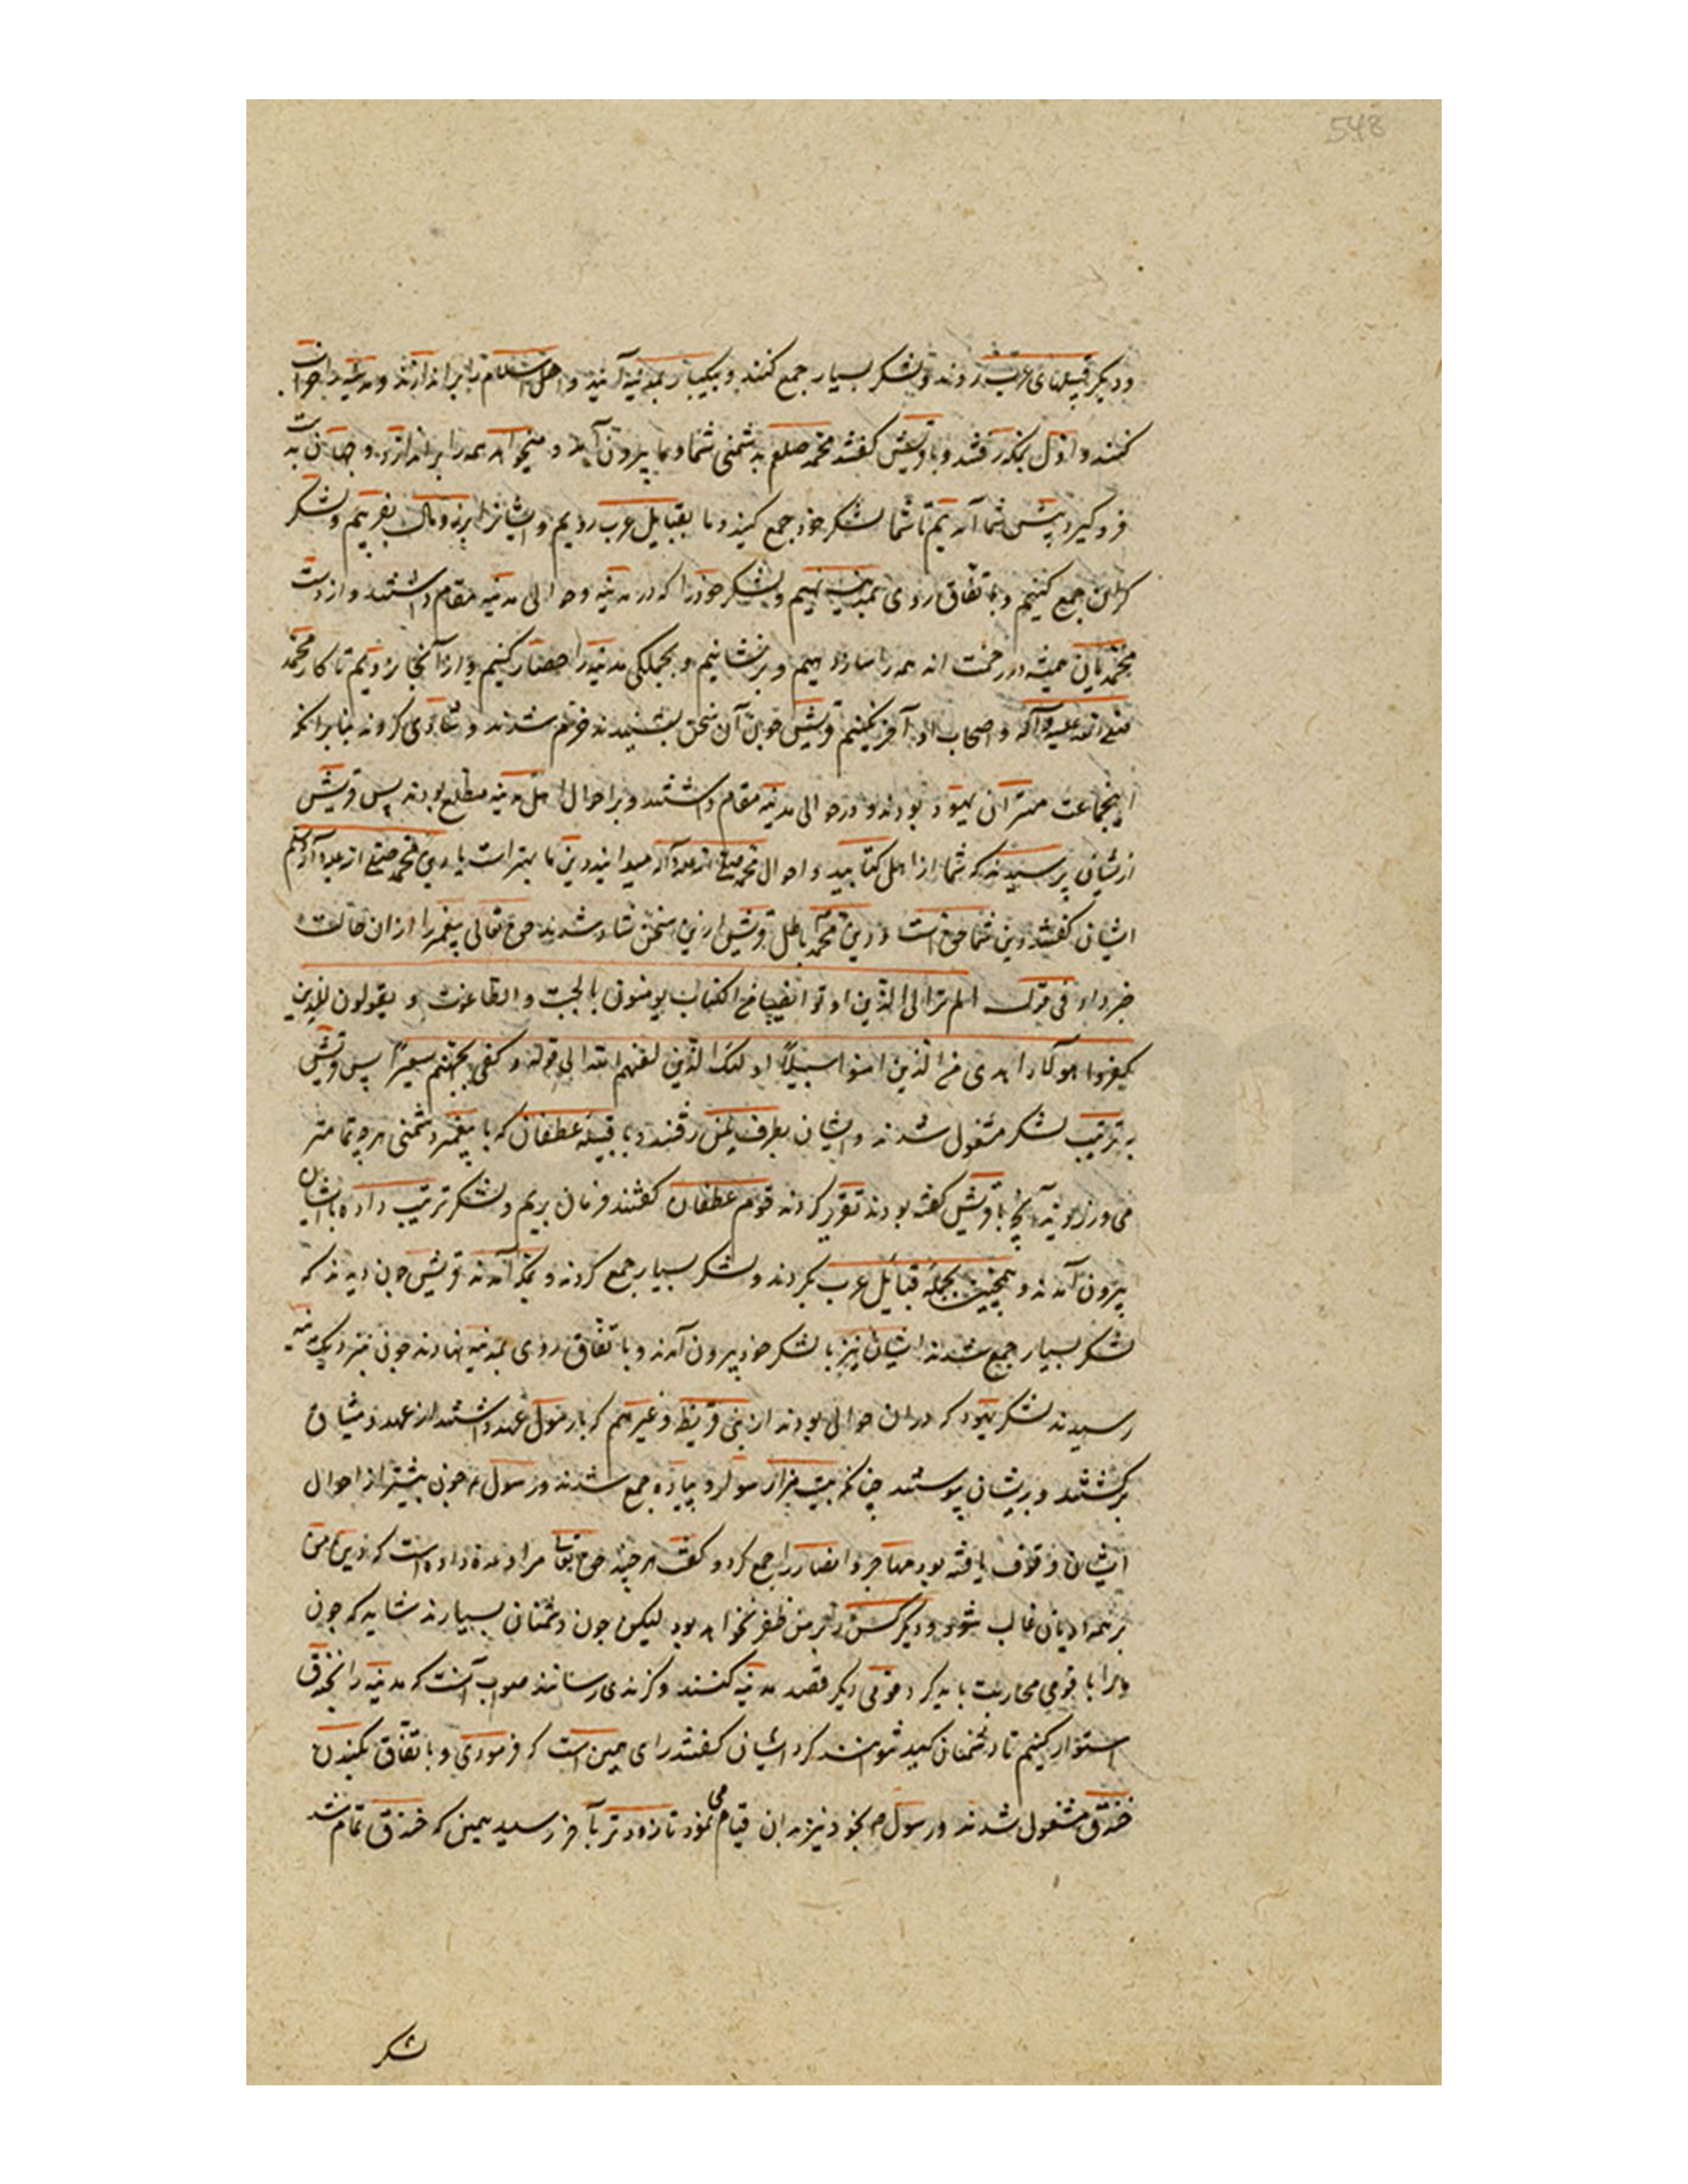 548
و دیگر قبیلهای عرب روند و لشکر بسیار جمع کنند و بیکبار بمدینه آیند و اهل اسلام را براندازند و مدینه را خراب
کنند و اول بمکه رفتند و با قریش گفتند محمد صلعم بدشمنی شما و ما بیرون آمد و میخواهد همه را براندازد و جهان بدست
فرو گیرد پیش شما آمدیم تا شما لشکر خود جمع کنید و ما بقبایل عرب رویم و ایشانرا بزر و مال بفریبیم و لشکر
کران جمع کنیم و باتفاق روی بمدینه نهیم و لشکر خود را که در مدینه و حوالی مدینه مقام داشتند و از دست
محمدیان همیشه در زحمت اند همه را ساز دهیم و برنشانیم و بجملکی مدینه را حصار کنیم و از آنجا نرویم تا کار محمد
صلی الله علیه و آله و اصحاب او آخر نکنیم قریش چون آن سخن بشنیدند خرم شدند و شادی کردند بنابرانکه
اینجماعت مهتران یهود بودند و در حوالی مدینه مقام داشتند و بر احوال اهل مدینه مطلع بودند پس قریش
ازیشان پرسیدند که شما از اهل کتابید و احوال محمد صلی الله علیه و آله میدانید دین ما بهترست یا دین محمد صلی الله علیه و آله و سلم
ایشان گفتند دین شما حق است و دین محمد باطل قریش ازین سخن شاد شدند حق تعالی پیغمبر را ازان حالت
خبر داد فی قوله الم تر الی الذین اوتوا نصیبا من الکتاب یومنون بالجبت و الطاغوت و یقولون للذین
کفروا هولاء اهدی من الذین امنوا سبیلا اولئک الذین لعنهم الله الی قوله و کفی بجهنم سعیرا پس قریش
بترتیب لشکر مشغول شدند و ایشان بطرف یمن رفتند و با قبیله غطفان که با پیغمبر دشمنی هر چه تمامتر
می ورزیدند آنچه با قریش گفته بودند تقریر کردند قوم غطفان گفتند فرمان بریم و لشکر ترتیب داده با ایشان
بیرون آمدند و همچنین بجمله قبائل عرب بکردند و لشکر بسیار جمع کردند و بمکه آمدند قریش چون دیدند که
لشکر بسیار جمع شدند ایشان نیز با لشکر خود بیرون آمدند و باتفاق روی بمدینه نهادند چون بنزدیک مدینه
رسیدند لشکر یهود که دران حوالی بودند از بنی قریظه و غیرهم که با رسول عهد داشتند از عهد و میثاق
برگشتند و بریشان پیوستند چنانکه بیست هزار سوار و پیاده جمع شدند و رسول ص چون پیشتر از احوال
ایشان وقوف یافته بود مهاجر و انصار را جمع کرد و گفت هر چند حق تعالی مرا وعده داده است که دین من
بر همه ادیان غالب شود و دیگر کس را بر من ظفر نخواهد بود لیکن چون دشمنان بسیارند شاید که چون
ما را با قومی محاربت باید کرد قومی دیگر قصد مدینه کنند و گزندی رسانند صواب آنست که مدینه را بخندق
استوار کنیم تا دشمنان کید نتوانند کرد ایشان گفتند رای همین است که فرمودی و باتفاق بکندن
خندق مشغول شدند و رسول ص بخود نیز بدان قیام می نمود تا زودتر بآخر رسید همین که خندق تمام شد
لشکر